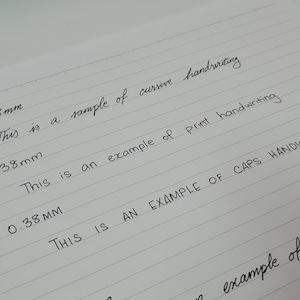 mm
This is a sample of cursive handwriting
38mm
This is an example of print handwriting
0.38MM
THIS IS AN EXAMPLE OF CAPS
example of